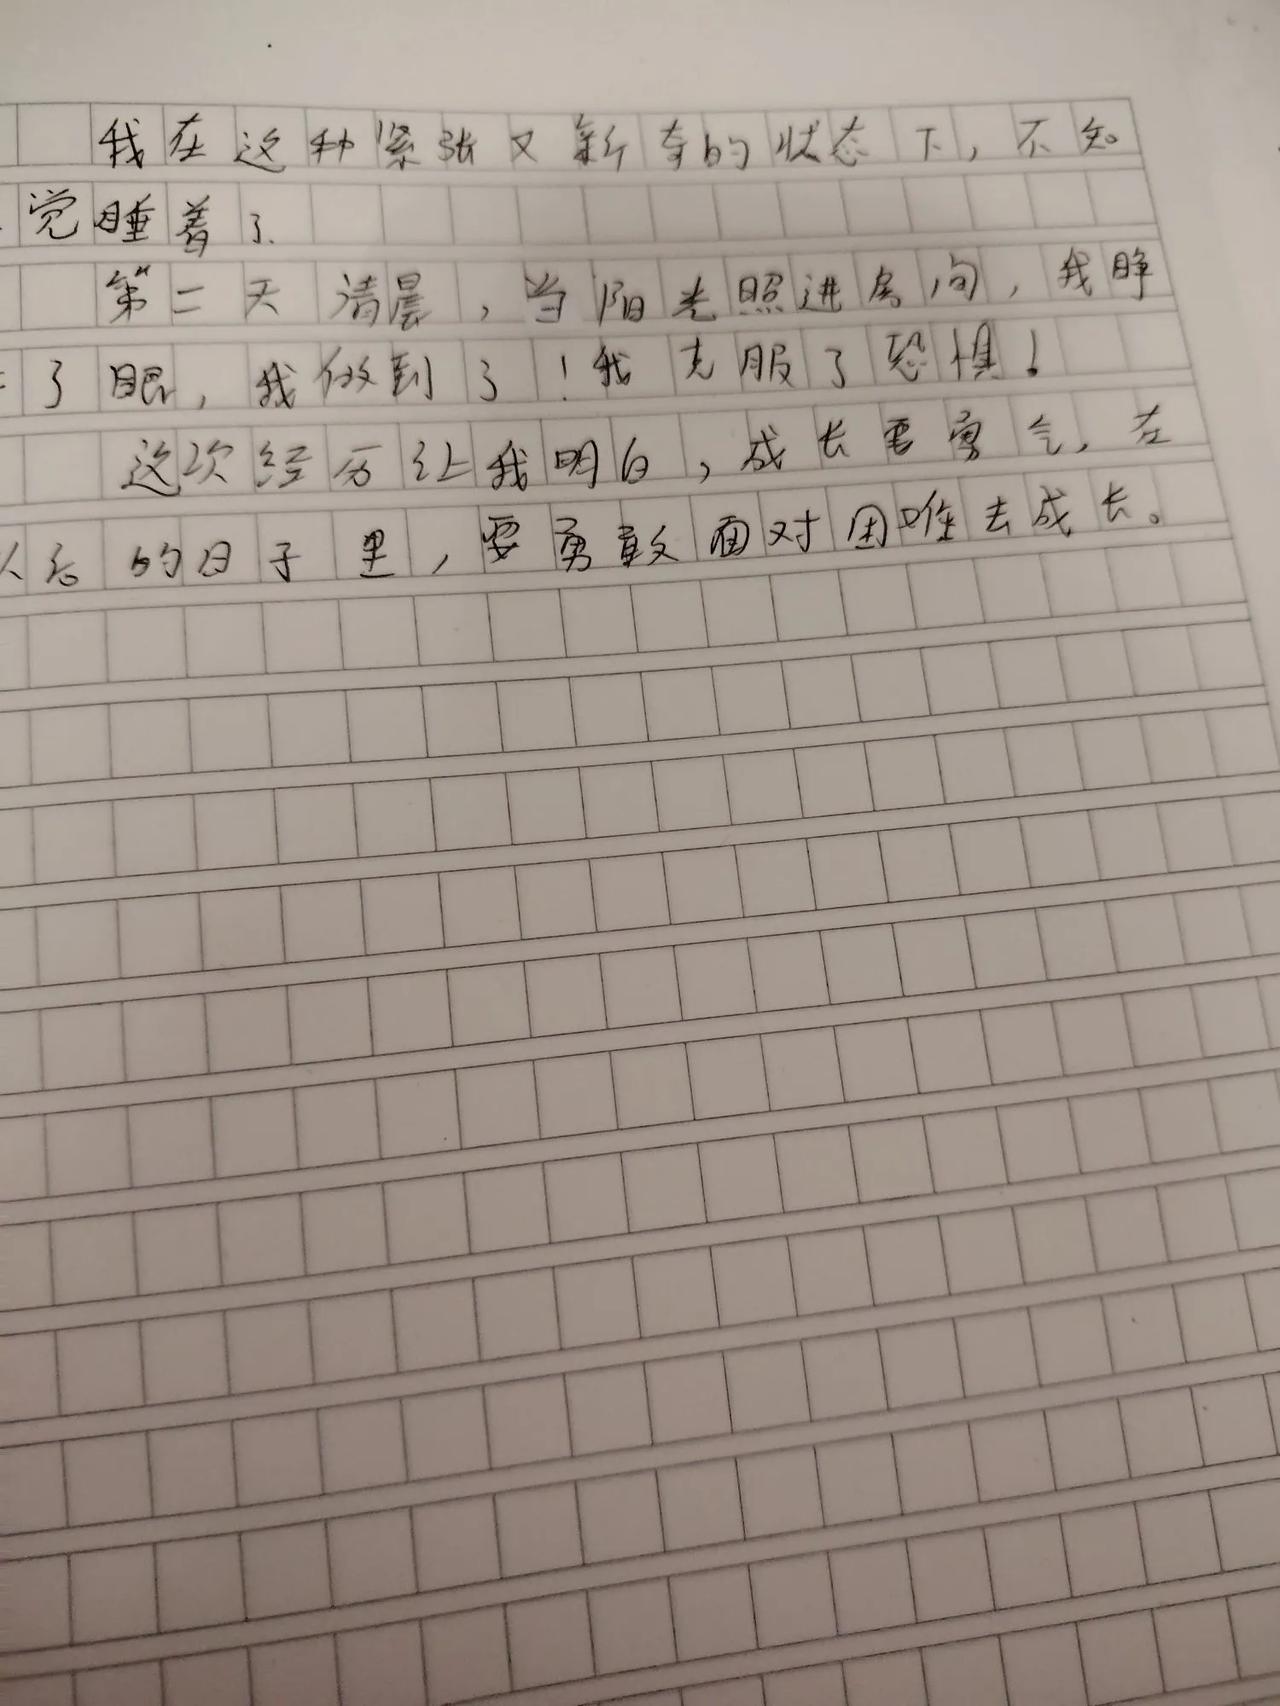 我在这种紧张又新奇的状态下，不知
觉睡着了.
第二天清晨，当阳光照进房间，我睁
了眼，我做到了！我克服了恐惧！
这次经历让我明白，成长要勇气，在
以后的日子里，要勇敢面对困难去成长。